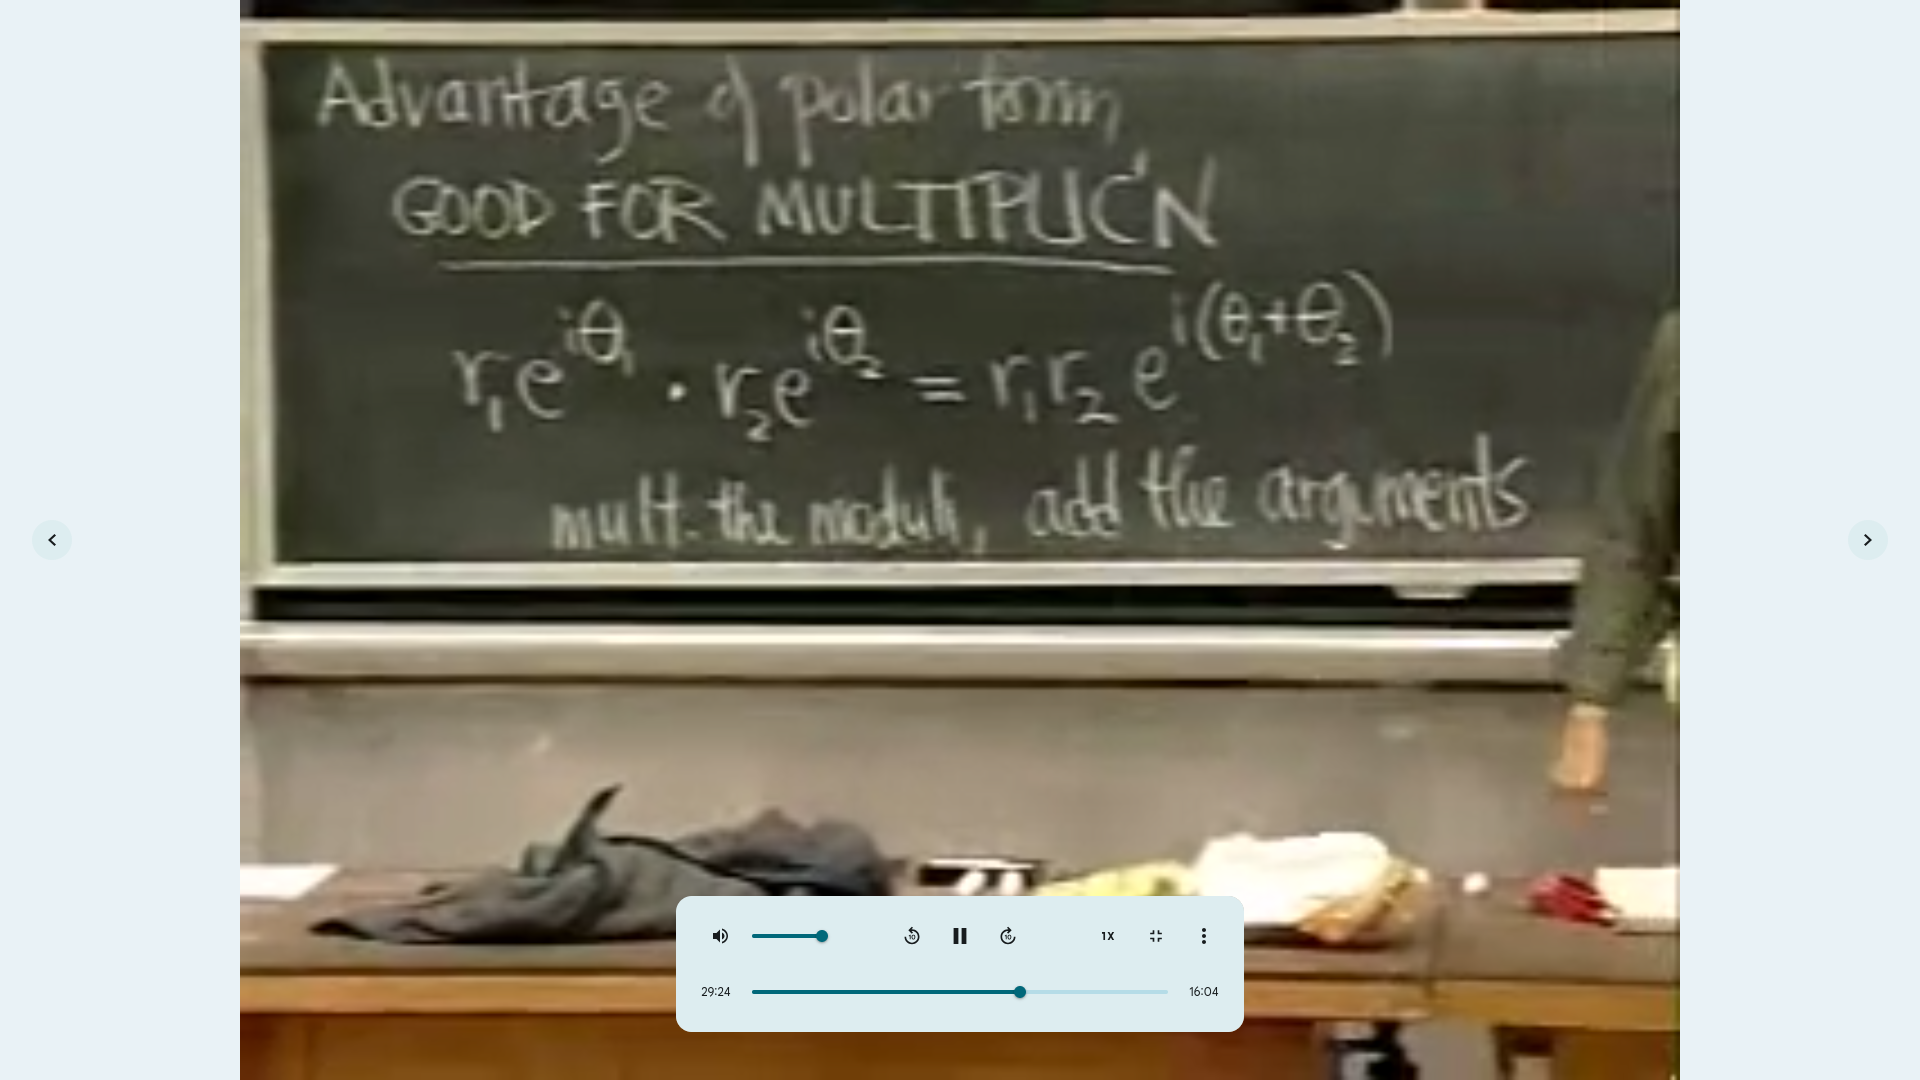 Advantage of polar form
GOOD FOR MULTIPLIC'N
r₁e^{iθ₁} · r₂e^{iθ₂} = r₁r₂ e^{i(θ₁+θ₂)}
mult. the moduli, add the arguments
10 10 1X
29:24 16:04